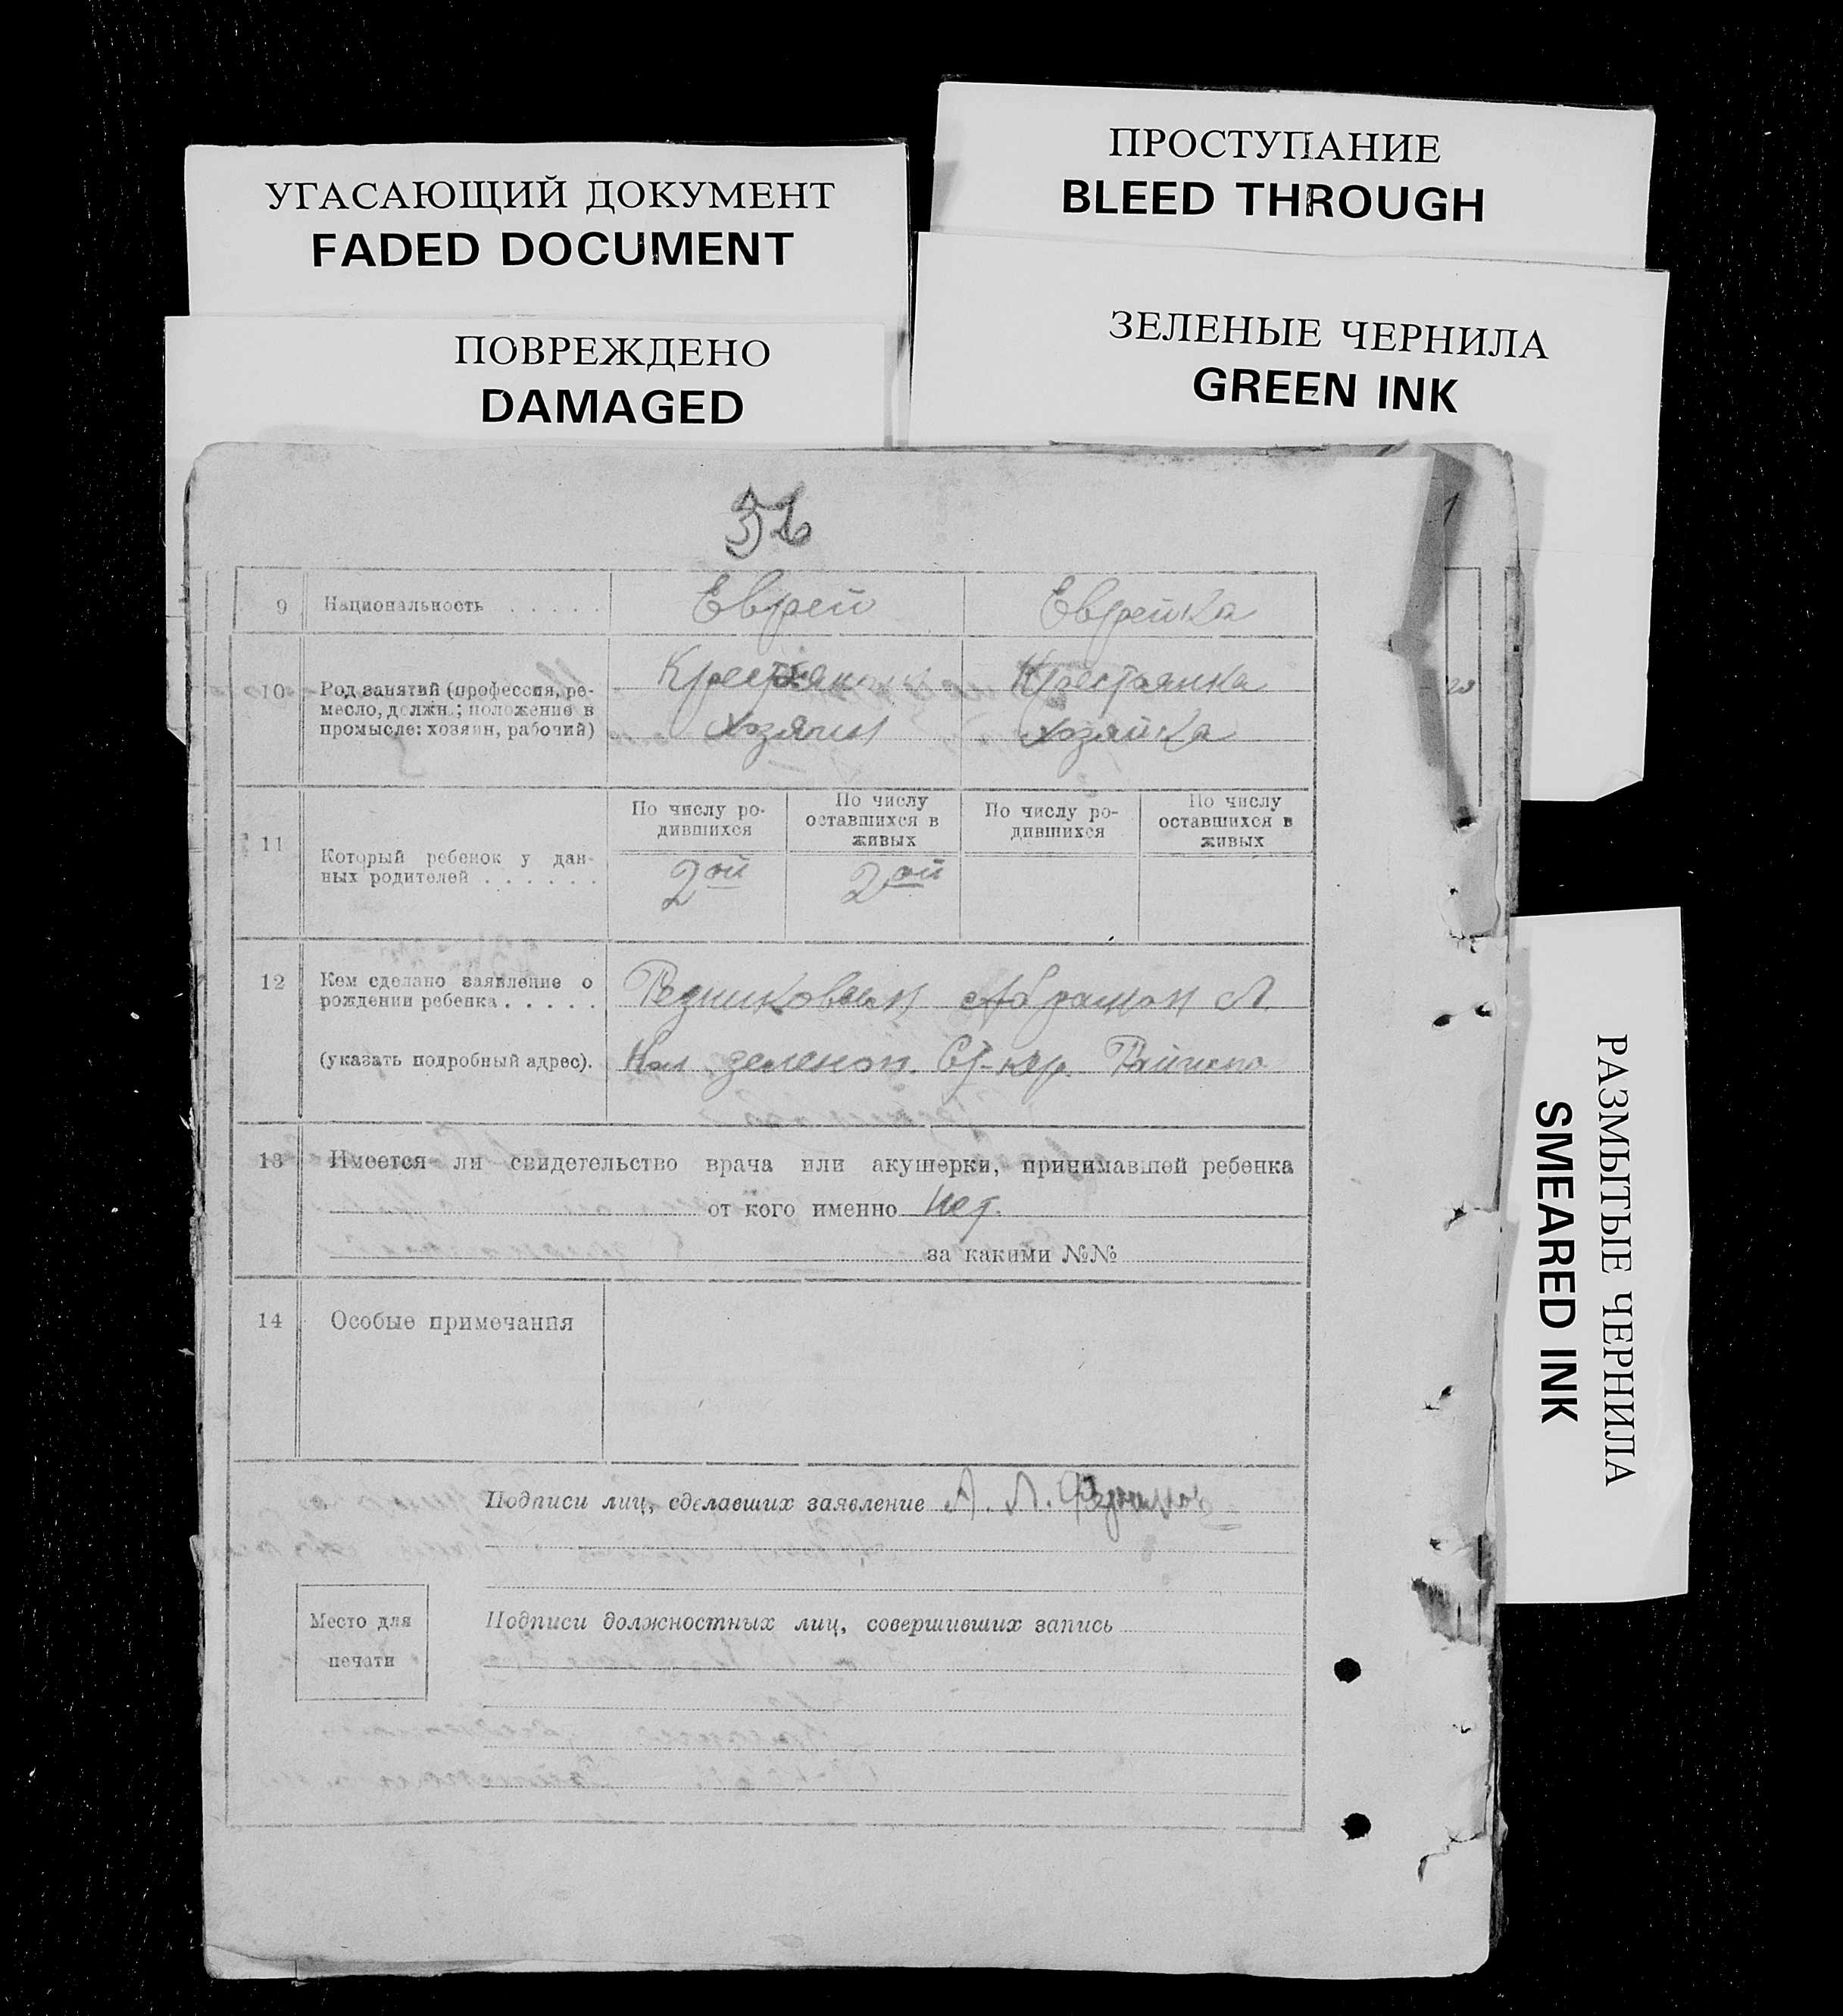 УГАСАЮЩИЙ ДОКУМЕНТ
FADED DOCUMENT
ПРОСТУПАНИЕ
BLEED THROUGH
ПОВРЕЖДЕНО
DAMAGED
ЗЕЛЕНЫЕ ЧЕРНИЛА
GREEN INK
9 Национальность . . . . . Еврей Еврейка
10 Род занятий (профессия, ре-
месло, должн.; положение в
промысле: хозяин, рабочий)
Крестьянин Крестьянка
хозяин хозяйка
11 Который ребенок у дан-
ных родителей . . . . . .
По числу ро-
дившихся
По числу
оставшихся в
живых
По числу ро-
дившихся
По числу
оставшихся в
живых
2ой 2ой
12 Кем сделано заявление о
рождении ребенка . . . . .
(указать подробный адрес).
Резниковым Абрамом Л.
13 Имеется ли свидетельство врача или акушерки, принимавшей ребенка
от кого именно Нет.
за какими №№
14 Особые примечания
Подписи лиц, сделавших заявление А. Л.
Место для
печати
Подписи должностных лиц, совершивших запись
РАЗМЫТЫЕ ЧЕРНИЛА
SMEARED INK